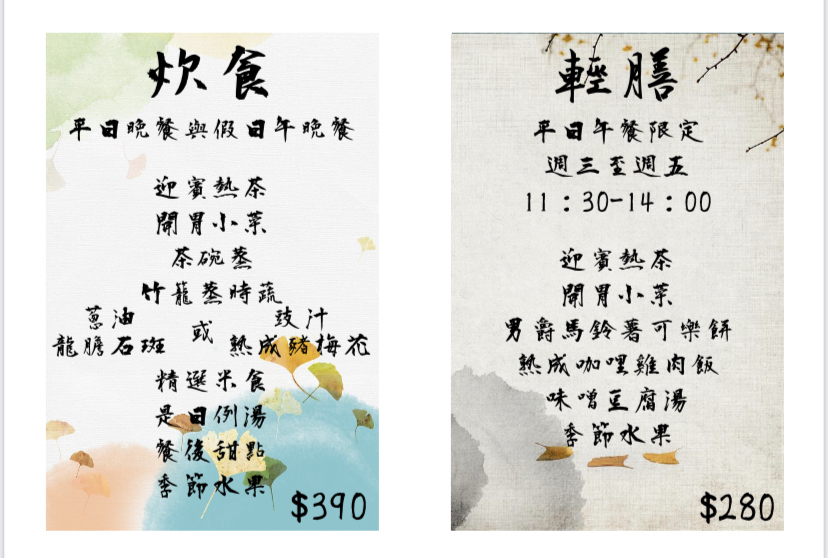 炊食
平日晚餐與假日午晚餐
迎賓熱茶
開胃小菜
茶碗蒸
竹籠蒸時蔬
蔥油
龍膽石斑
或
豉汁
熟成豬梅花
精選米食
是日例湯
餐後甜點
季節水果
$390
輕膳
平日午餐限定
週三至週五
11：30-14：00
迎賓熱茶
開胃小菜
男爵馬鈴薯可樂餅
熟成咖哩雞肉飯
味噌豆腐湯
季節水果
$280